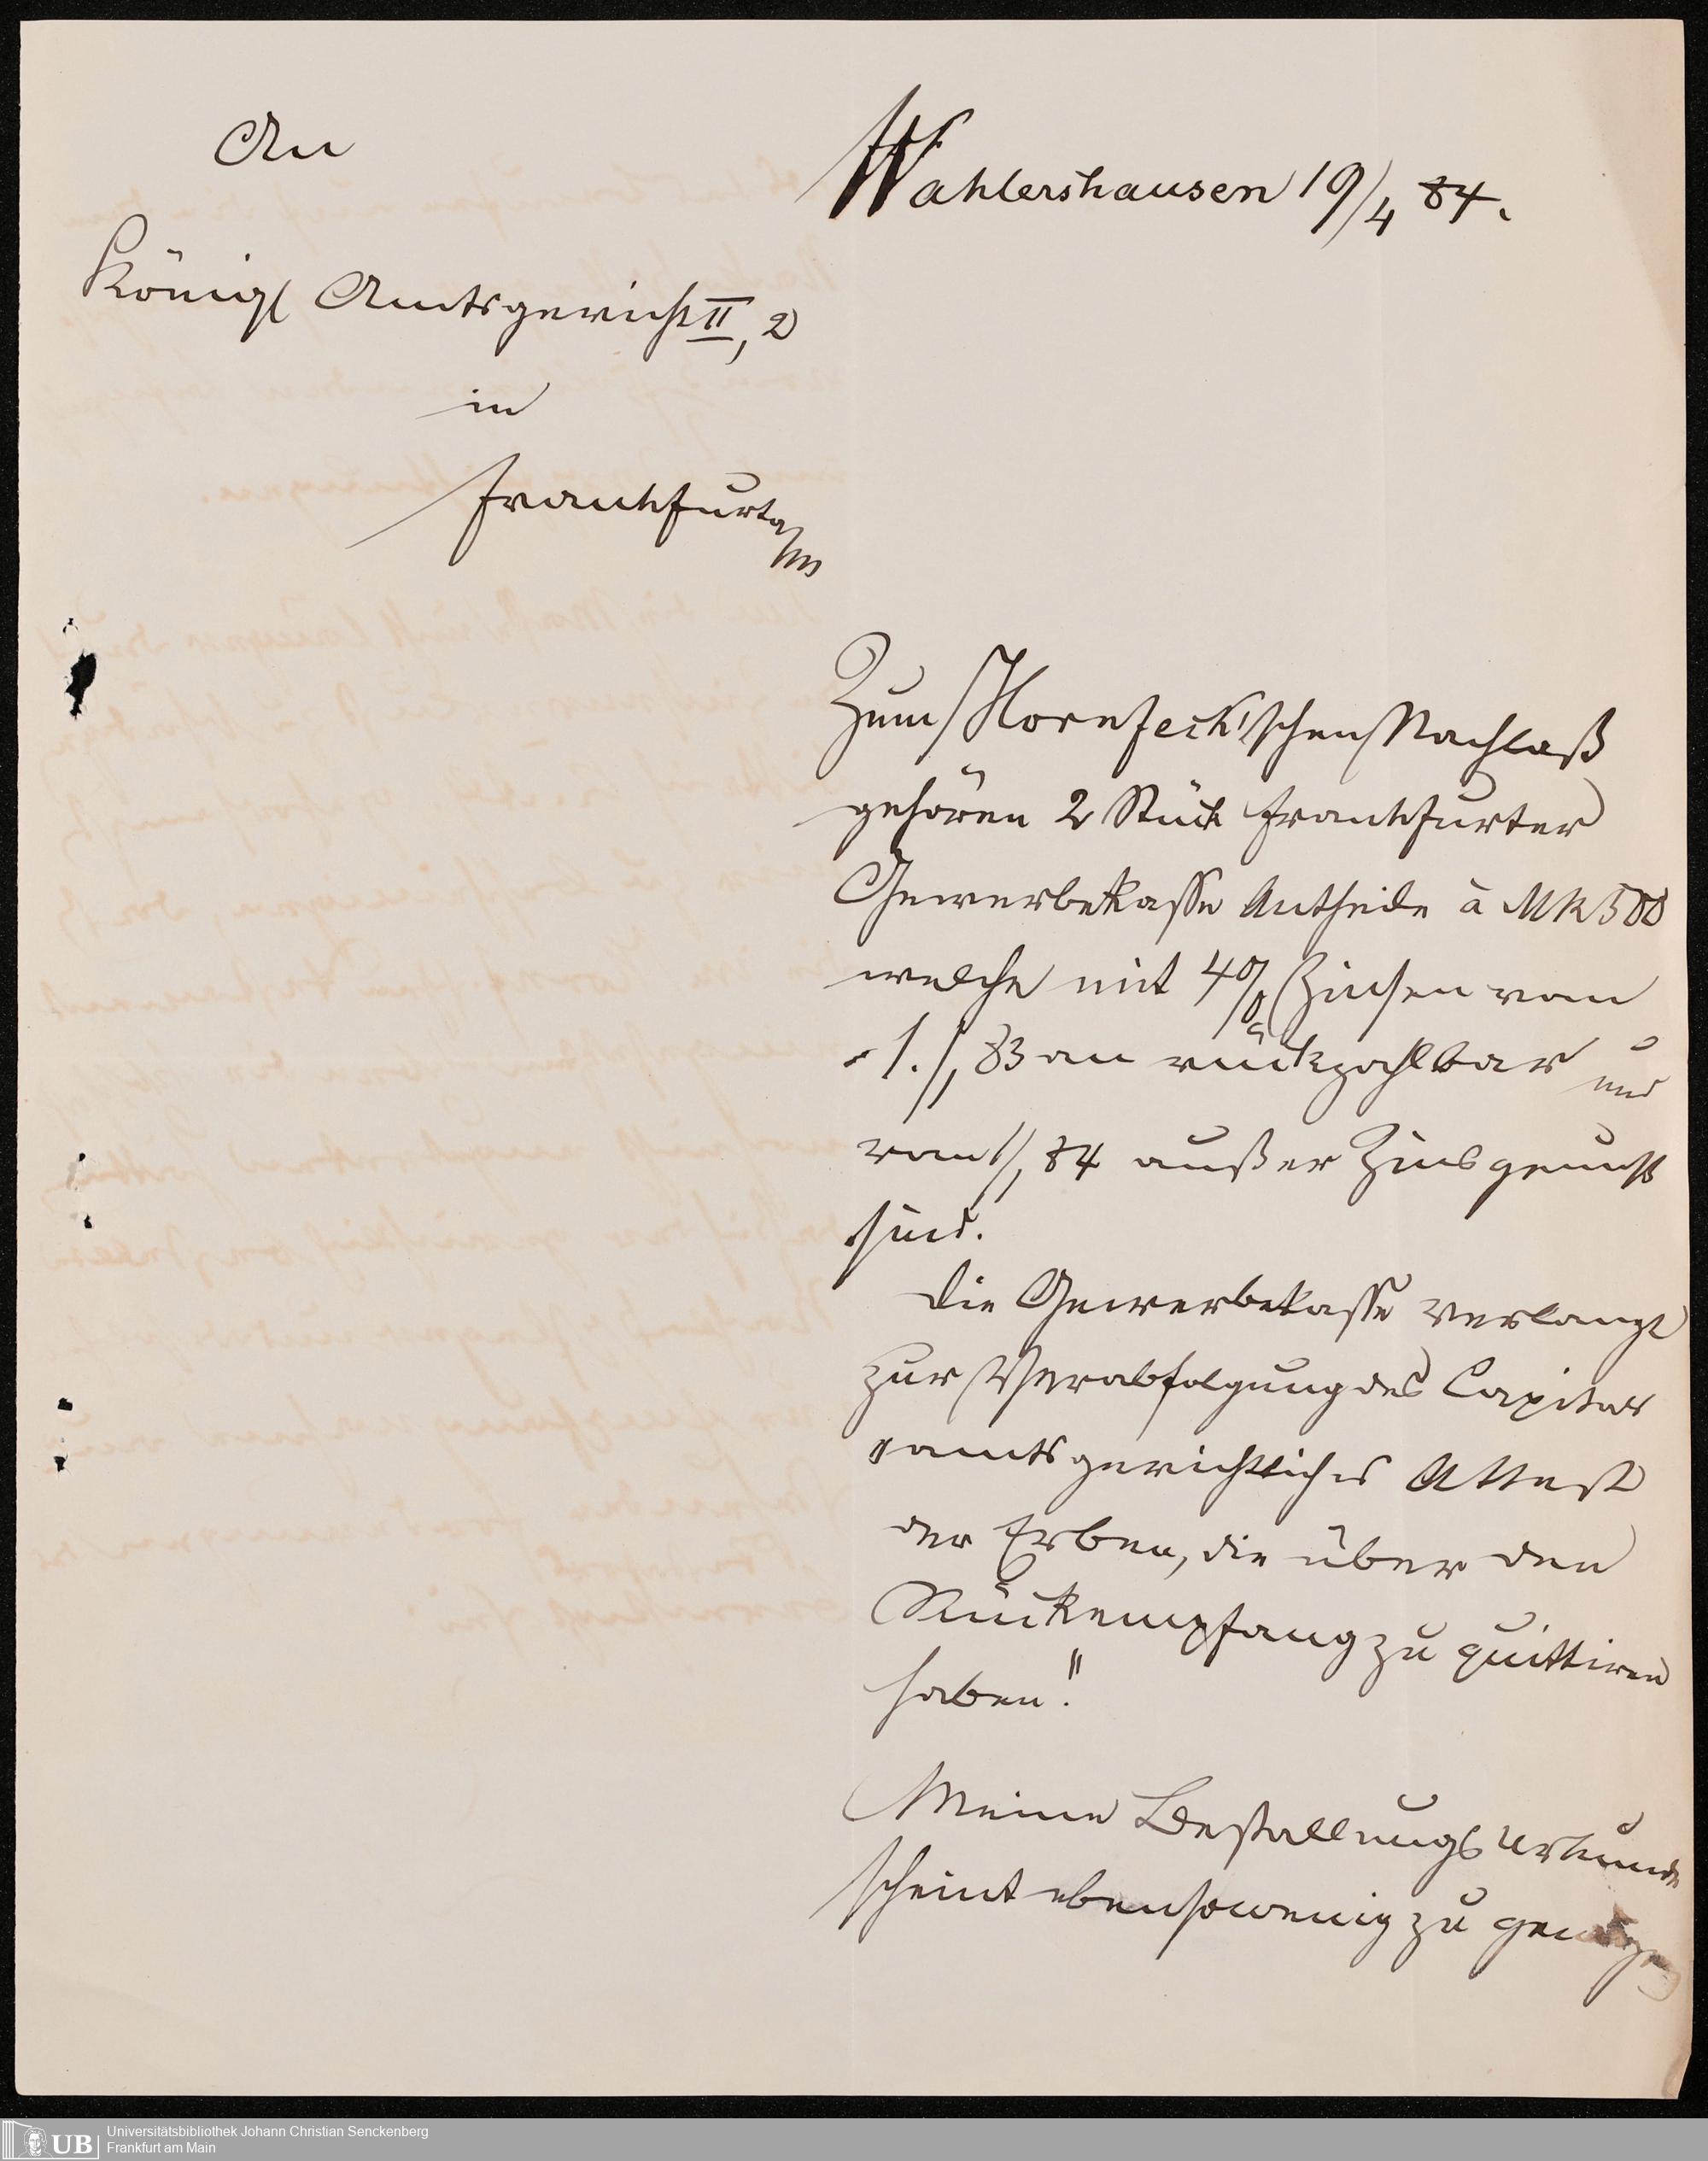 An
Königl Amtsgericht II, 2
in
Frankfurt a/M
Wahlershausen 19/4 84.
Zum Hornfeck'schen Nachlaß
gehören 2 Stück Frankfurter
Gewerbekasse Antheile à Mk 500
welche mit 4% Zinsen vom
1./1 83 an rückzahlbar und
vom 1/1 84 außer Zinsgenuß
sind.
Die Gewerbekasse verlangt
zur Verabfolgung des Capitals
"amtsgerichtliches Attest
der Erben, die über den
Rückempfang zu quittiren
haben".
Meine Bestallungs Urkunde
scheint ebensowenig zu genügen
Universitätsbibliothek Johann Christian Senckenberg
Frankfurt am Main
UB